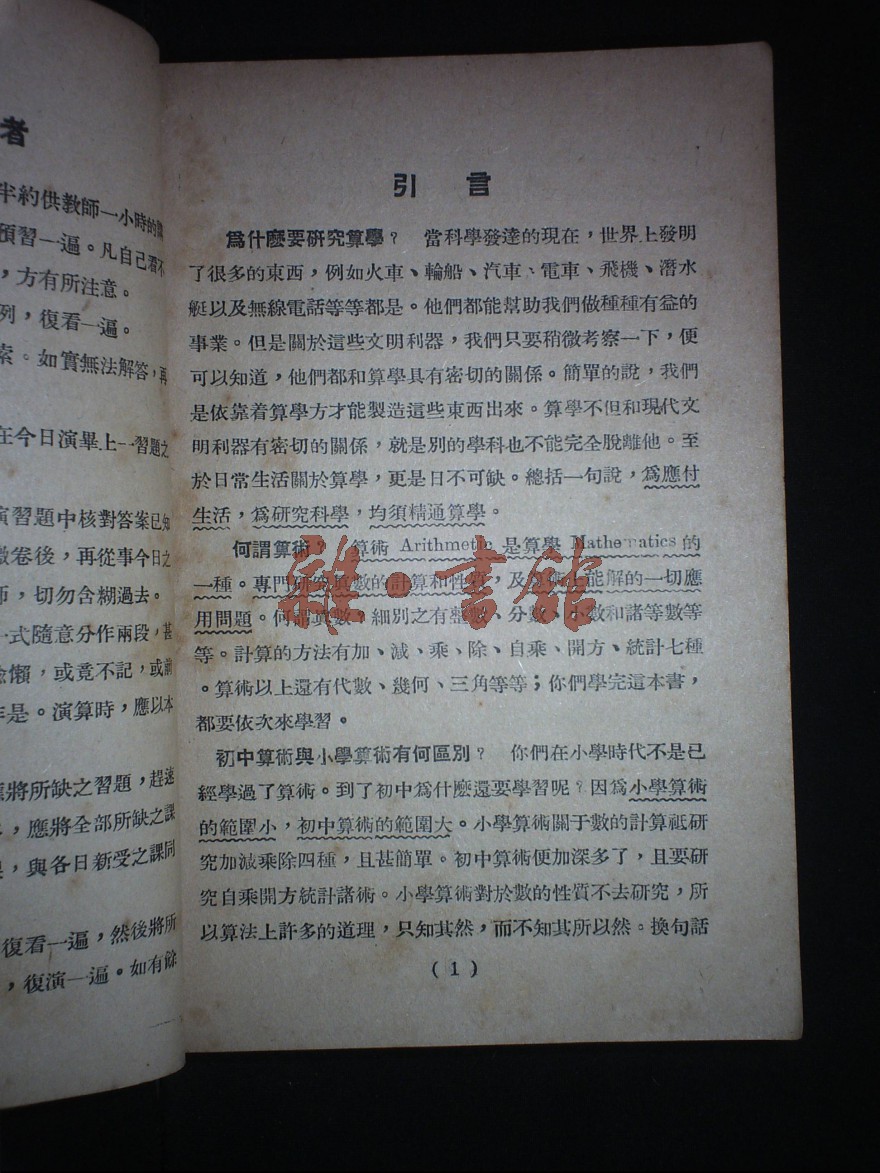 者
半約供教師一小時的
預習一遍。凡自己看不
，方有所注意。
列，復看一遍。
索。如實無法解答，再
在今日演畢上一習題之
演習題中核對答案已知
繳卷後，再從事今日之
師，切勿含糊過去。
一式隨意分作兩段，甚
懶，或竟不記，或
是。演算時，應以本
應將所缺之習題，趕速
，應將全部所缺之課
，與各日新受之課同
復看一遍，然後將所
，復演一遍。如有餘
引 言
爲什麽要研究算學？ 當科學發達的現在，世界上發明
了很多的東西，例如火車、輪船、汽車、電車、飛機、潛水
艇以及無線電話等等都是。他們都能幫助我們做種種有益的
事業。但是關於這些文明利器，我們只要稍微考察一下，便
可以知道，他們都和算學具有密切的關係。簡單的說，我們
是依靠着算學方才能製造這些東西出來。算學不但和現代文
明利器有密切的關係，就是別的學科也不能完全脫離他。至
於日常生活關於算學，更是日不可缺。總括一句說，爲應付
生活，爲研究科學，均須精通算學。
何謂算術？ 算術 Arithmetic 是算學 Mathematics 的
一種。專門研究真數的計算和性質，及算術上能解的一切應
用問題。何謂真數，細別之有整數、分數、小數和諸等數等
等。計算的方法有加、減、乘、除、自乘、開方、統計七種
。算術以上還有代數、幾何、三角等等；你們學完這本書，
都要依次來學習。
初中算術與小學算術有何區別？ 你們在小學時代不是已
經學過了算術。到了初中爲什麽還要學習呢？因爲小學算術
的範圍小，初中算術的範圍大。小學算術關于數的計算祗研
究加減乘除四種，且甚簡單。初中算術便加深多了，且要研
究自乘開方統計諸術。小學算術對於數的性質不去研究，所
以算法上許多的道理，只知其然，而不知其所以然。換句話
(1)
雜·書館